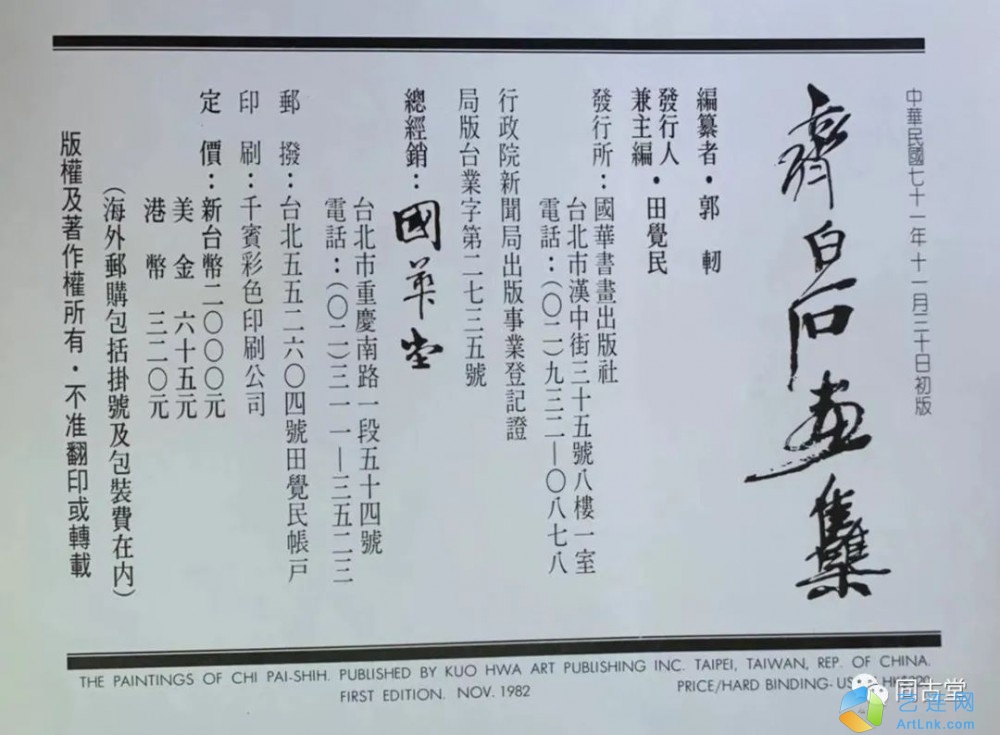 中華民國七十一年十一月三十日初版
齊白石畫集
編纂者・郭　軔
發行人・田覺民
兼主編
發行所：國華書畫出版社
台北市漢中街三十五號八樓一室
電話：（〇二）九三二—〇八七八
行政院新聞局出版事業登記證
局版台業字第二七三五號
總經銷：國華堂
台北市重慶南路一段五十四號
電話：（〇二）三一一—三五二三
郵　撥：台北五五二六〇四號田覺民帳戶
印　刷：千賓彩色印刷公司
定　價：新台幣二〇〇〇元
美　金　六十五元
港　幣　三二〇元
（海外郵購包括掛號及包裝費在內）
版權及著作權所有・不准翻印或轉載
THE PAINTINGS OF CHI PAI-SHIH. PUBLISHED BY KUO HWA ART PUBLISHING INC. TAIPEI, TAIWAN, REP. OF CHINA.
FIRST EDITION. NOV. 1982
PRICE/HARD BINDING- US
同古堂
艺连网
ArtLnk.com